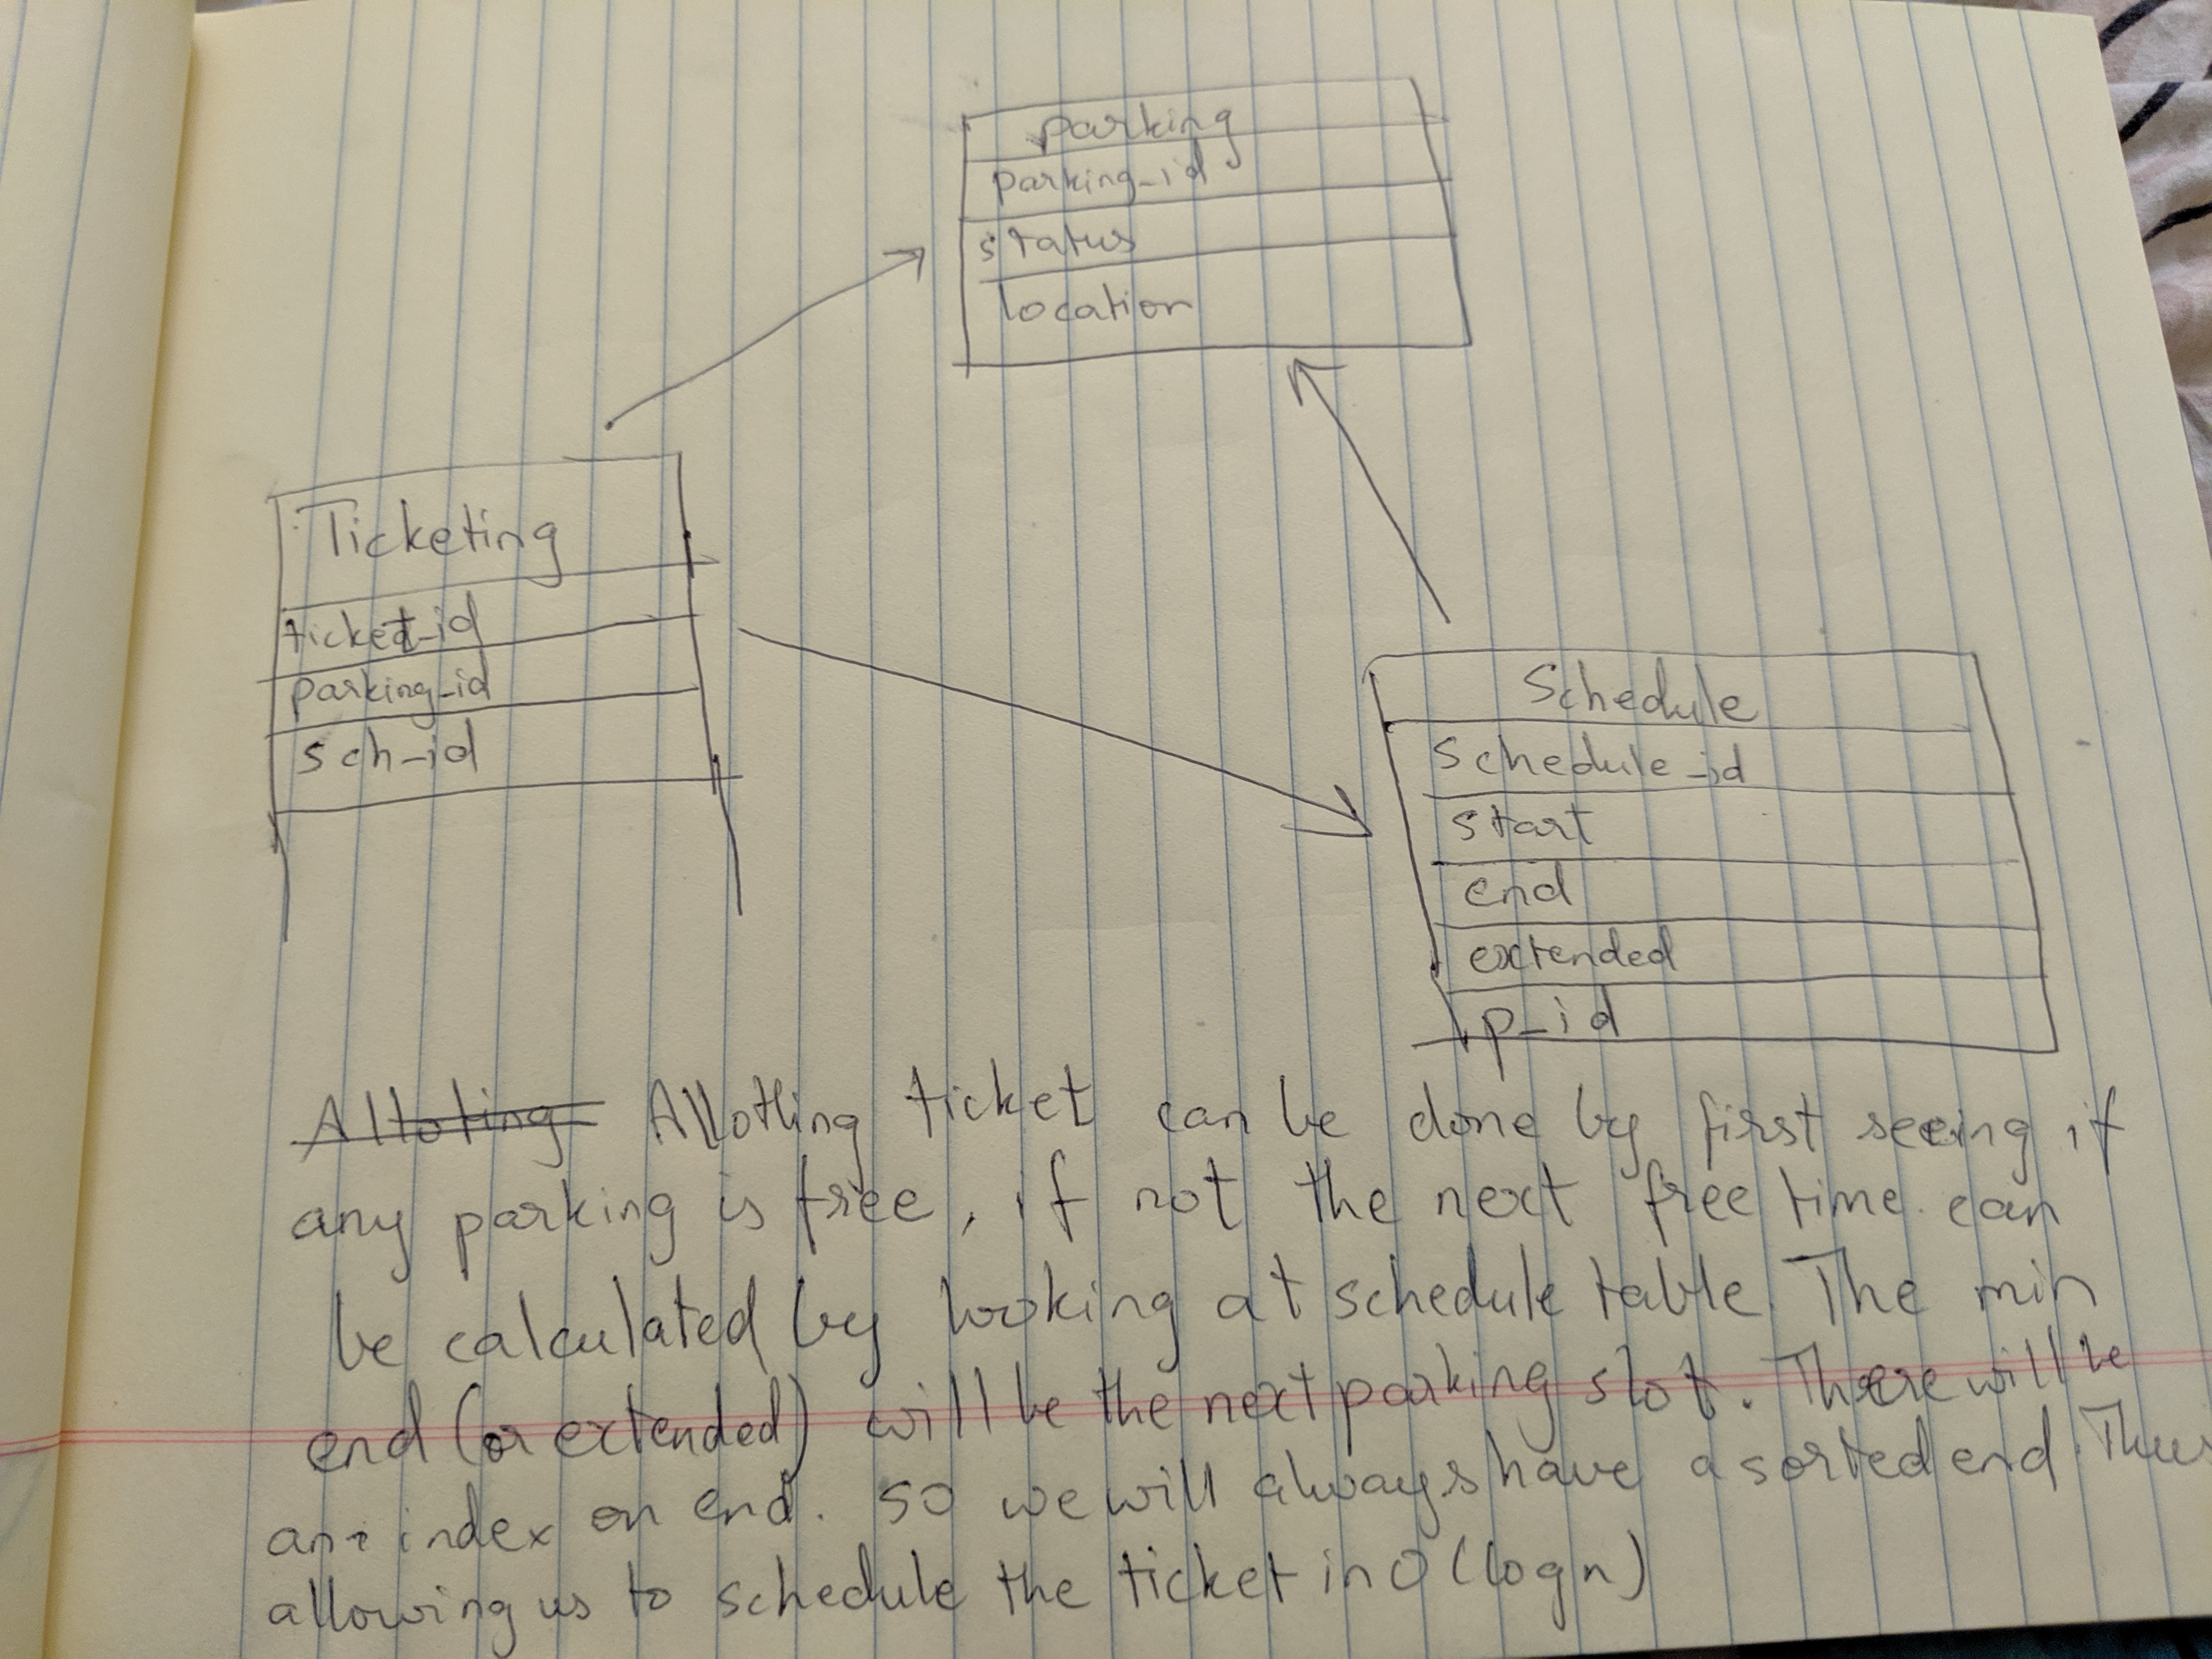 Parking
parking_id
status
location
Ticketing
ticket_id
parking_id
sch_id
Schedule
schedule_id
start
end
extended
p_id
Alloting Allotling ticket can be done by first seeing if
any parking is free, if not the next free time can
be calculated by looking at schedule table. The min
end (or extended) will be the next parking slot. There will be
an index on end. so we will always have a sorted end. Thus
allowing us to schedule the ticket in O(log n)